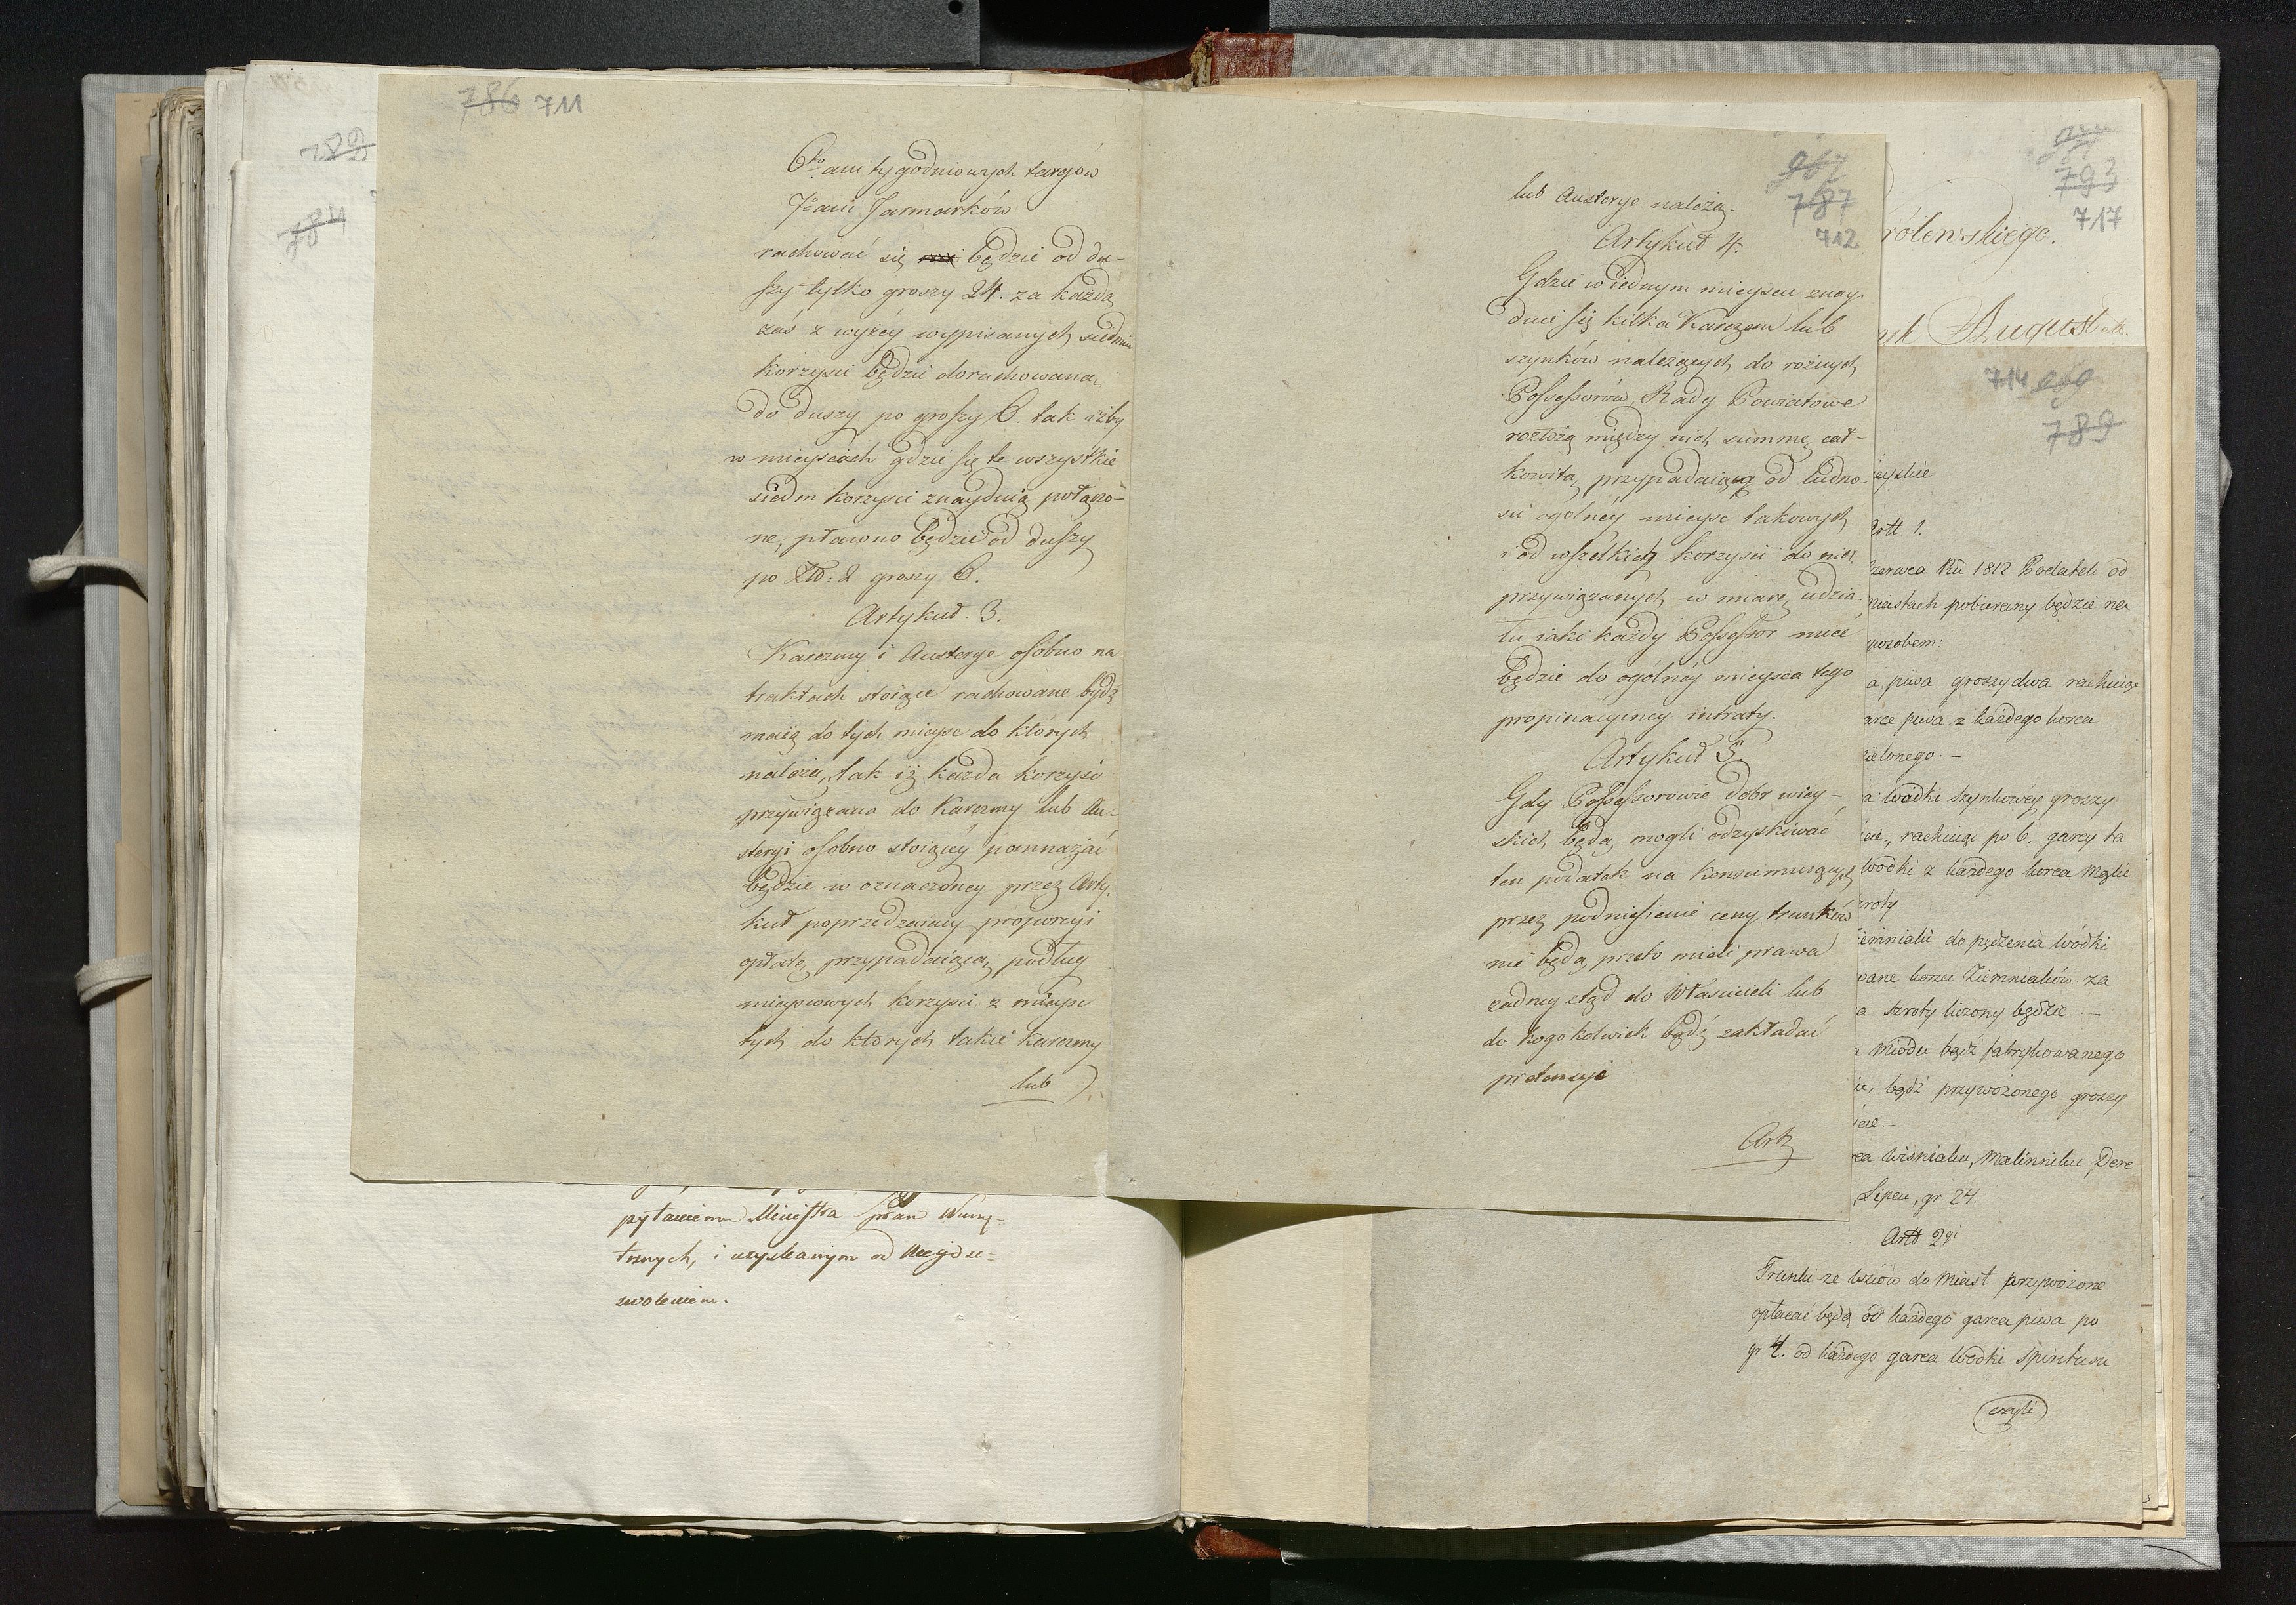 786 711
6to ani tygodniowych targów
7o ani Jarmarków
rachować się będzie od du-
szy tylko groszy 24. za każdą
zaś z wyżéy wypisanych siedmiu
korzyści będzie dorachowana
do duszy po groszy 6. tak iżby
w mieyscach gdzie się te wszystkie
siedm korzyści znayduią połączo-
ne, płacono będzie od duszy
po Złł: 2 groszy 6.
Artykuł. 3.
Karczmy i Austerye osobno na
traktach stoiące rachowane bydź
maią do tych mieysc do których
należą, tak iż każda korzyść
przywiązana do Karczmy lub Au-
steryi osobno stoiącéy pomnażać
będzie w oznaczoney przez Arty-
kuł poprzedzaiący proporcyi
opłatę przypadaiącą podług
mieyscowych korzyści z mieysc
tych do których takie karczmy
lub
782
784
pytaniem Ministra Spraw Wewnę-
trznych, i uzyskanym od Niego ze-
zwoleniem.
967
787
712
lub Austerye należą.
Artykuł 4.
Gdzie w iednym mieyscu znay-
duie się kilka Karczem lub
szynków należących do rożnych
Possessorów, Rady Powiatowe
rozłożą między nich summę cał-
kowitą przypadaiącą od ludno-
ści ogólnéy mieysc takowych
i od wszelkich korzyści do nich
przywiązanych w miarę udzia-
łu iaki każdy Possessor mieć
będzie do ogólnéy mieysca tego
propinacyiney intraty.
Artykuł 5.
Gdy Possessorowie dobr wiey-
skich będą mogli odzyskiwać
ten podatek na konsumuiących
przez podniesienie ceny trunków
nie będą przeto mieli prawa
żadney ztąd do Właścicieli lub
do kogokolwiek bądź zakładać
pretensyi
Art
793
717
rólewskiego.
August
714
789
eyskie
Artt 1.
zerwca Ru 1812 Podatek od
miastach pobierany będzie na
posobem:
a piwa groszy dwa rachuiąc
arce piwa z każdego korca
ielonego.-
a wódki szynkowéy groszy
, rachuiąc po 6. garcy ta
wodki z każdego korca
zroty
iemniaki do pędzenia wódki
wane korzec Ziemniaków za
a szroty liczony będzie -
Miodu bądź fabrykowanego
ie, bądź przywożonego groszy
ea wisniaku, Malinniku, Dere
Lipcu, gr 24.
Artt 2gi
Trunki ze wsiów do Miast przywożone
opłacać będą od każdego garca piwa po
gr 4. od każdego garca wodki spiritusu
czyli